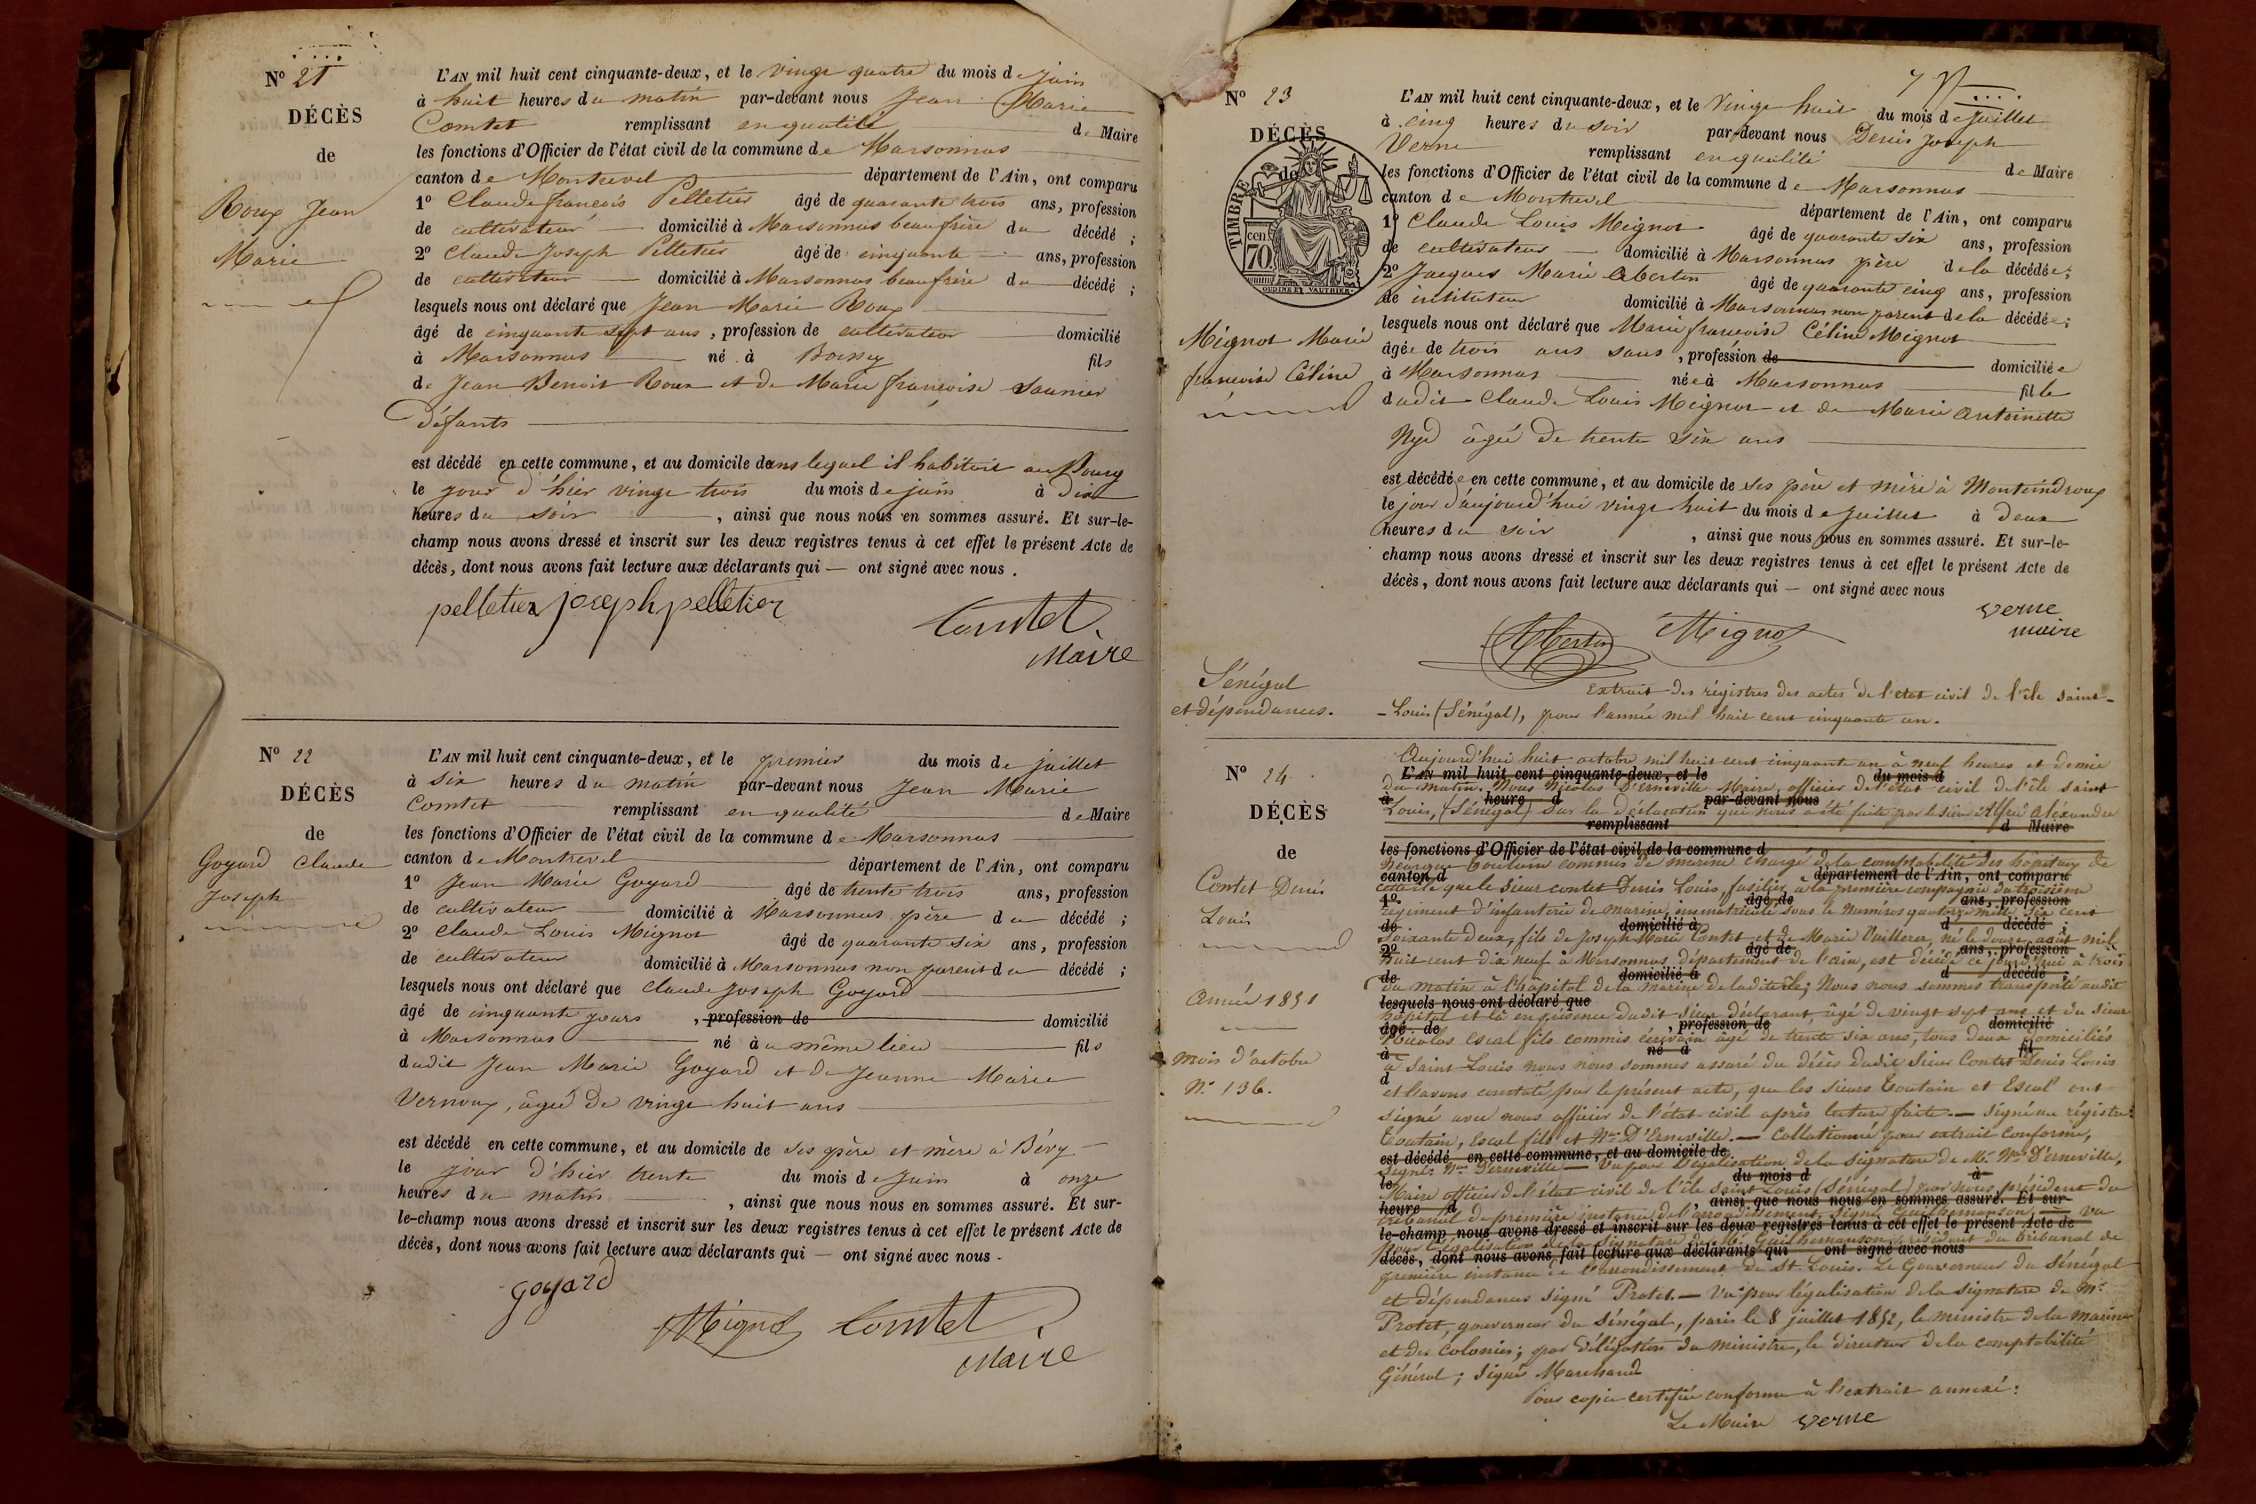 Nº 21
DÉCÈS
de
Roux Jean
Marie
L'AN mil huit cent cinquante-deux, et le vingt quatre du mois de juin
à huit heures du matin par-devant nous Jean Marie
Comtet remplissant en qualité de Maire
les fonctions d'Officier de l'état civil de la commune de Marsonnas
canton de Montrevel département de l'Ain, ont comparu
1º Claude françois Pelletier âgé de quarante trois ans, profession
de cultivateur domicilié à Marsonnas beaufrère du décédé ;
2º Claude Joseph Pelletier âgé de cinquante ans, profession
de cultivateur domicilié à Marsonnas beaufrère du décédé ;
lesquels nous ont déclaré que Jean Marie Roux
âgé de cinquante sept ans, profession de cultivateur domicilié
à Marsonnas né à Boissey fils
de Jean Benoit Roux et de Marie françoise Saunier
Défunts
est décédé en cette commune, et au domicile dans lequel il habitait au Bourg
le jour d'hier vingt trois du mois de juin à dix
heures du soir, ainsi que nous nous en sommes assuré. Et sur-le-
champ nous avons dressé et inscrit sur les deux registres tenus à cet effet le présent Acte de
décès, dont nous avons fait lecture aux déclarants qui — ont signé avec nous.
pelletier joseph pelletier
Comtet
Maire
Nº 22
DÉCÈS
de
Goyard Claude
Joseph
L'AN mil huit cent cinquante-deux, et le premier du mois de juillet
à six heures du matin par-devant nous Jean Marie
Comtet remplissant en qualité de Maire
les fonctions d'Officier de l'état civil de la commune de Marsonnas
canton de Montrevel département de l'Ain, ont comparu
1º Jean Marie Goyard âgé de trente trois ans, profession
de cultivateur domicilié à Marsonnas père du décédé ;
2º Claude Louis Mignot âgé de quarante six ans, profession
de cultivateur domicilié à Marsonnas non parent du décédé ;
lesquels nous ont déclaré que Claude Joseph Goyard
âgé de cinquante jours, profession de domicilié
à Marsonnas né à u même lieu fils
dudit Jean Marie Goyard et de Jeanne Marie
Vernoux, âgée de vingt huit ans
est décédé en cette commune, et au domicile de ses père et mère à Bévy
le jour d'hier trente du mois de Juin à onze
heures du matin, ainsi que nous nous en sommes assuré. Et sur-
le-champ nous avons dressé et inscrit sur les deux registres tenus à cet effet le présent Acte de
décès, dont nous avons fait lecture aux déclarants qui — ont signé avec nous.
goyard
Mignot Comtet
Maire
Nº 23
DÉCÈS
de
TIMBRE
cen.
70
OUDINE F. VAUTHIER
Mignot Marie
françoise Céline
L'AN mil huit cent cinquante-deux, et le vingt huit du mois de juillet
à cinq heures du soir par-devant nous Denis Joseph
Verne remplissant en qualité de Maire
les fonctions d'Officier de l'état civil de la commune de Marsonnas
canton de Montrevel département de l'Ain, ont comparu
1º Claude Louis Mignot âgé de quarante six ans, profession
de cultivateur domicilié à Marsonnas père de la décédée ;
2º Jacques Marie Aberlin âgé de quarante cinq ans, profession
de intituteur domicilié à Marsonnas non parent de la décédée ;
lesquels nous ont déclaré que Marie françoise Céline Mignot
âgée de trois ans sans, profession de domiciliée
à Marsonnas née à Marsonnas fille
dudit Claude Louis Mignot et de Marie Antoinette
Nyd âgée de trente six ans
est décédée en cette commune, et au domicile de ses père et mère à Monteindroux
le jour d'aujourd'hui vingt huit du mois de Juillet à deux
heures du soir, ainsi que nous nous en sommes assuré. Et sur-le-
champ nous avons dressé et inscrit sur les deux registres tenus à cet effet le présent Acte de
décès, dont nous avons fait lecture aux déclarants qui — ont signé avec nous
verne
maire
Mignot
Sénégal
et dépendances.
Extrait des régistres des actes de l'état civil de l'île saint-
-Louis (Sénégal), pour l'année mil huit cent cinquante un.
Nº 24
DÉCÈS
de
Contet Denis
Louis
Année 1851
Mois d'octobre
Nº 136.
Aujourd'hui huit octobre mil huit cent cinquante un à neuf heures et demie
du matin. Nous Nicolas D'Erneville Maire, officier de l'état civil de l'île saint
Louis, (Sénégal) sur la déclaration que nous a été faite par le sieur Alfred Alexandre
Toutain commis de marine chargé de la comptabilité des hopitaux de
cette île que le sieur contet Denis Louis, fusilier à la première compagnie du troisième
régiment d'infanterie de marine, immatriculé sous le numéros quatorze mille six cent
soixante deux, fils de Joseph Marie Contet et de Marie Vuilleret, né le douze août mil
huit cent dix neuf à Marsonnas, département de l'ain, est décédé ce jourd'hui à trois
du matin à l'hôpital de la marine de ladite île ; Nous nous sommes transporté audit
hôpital et là en présence dudit sieur déclarant, âgé de vingt sept ans et du sieur
Nicolas Escal fils commis écrivain âgé de trente six ans, tous deux domiciliés
à Saint Louis nous nous sommes assuré du décès dudit sieur Contet Denis Louis
et l'avons constaté par le présent acte, que les sieurs Toutain et Escal ont
signé avec nous officier de l'état civil après lecture faite. — signé au régistre :
Toutain, Escal fils et Nas D'Erneville. — Collationné pour extrait conforme,
signé Nas D'erneville — Vu pour légalisation de la signature de Mr. Nas D'erneville,
Maire officier de l'état civil de l'île saint Louis (Sénégal) par nous président du
tribunal de première instance de l'arrondissement. — Vu
pour légalisation de la signature de Mr. président du tribunal de
première instance de l'arrondissement de St. Louis. Le Gouverneur du Sénégal
et dépendances signé Protet. — Vu pour légalisation de la signature de Mr.
Protet, gouverneur du Sénégal, paris le 8 juillet 1852, le ministre de la marine
et des colonies ; par délégation du ministre, le directeur de la comptabilité
Général ; Signé Marchand
Pour copie certifiée conforme à l'extrait annexé :
Le Maire verne